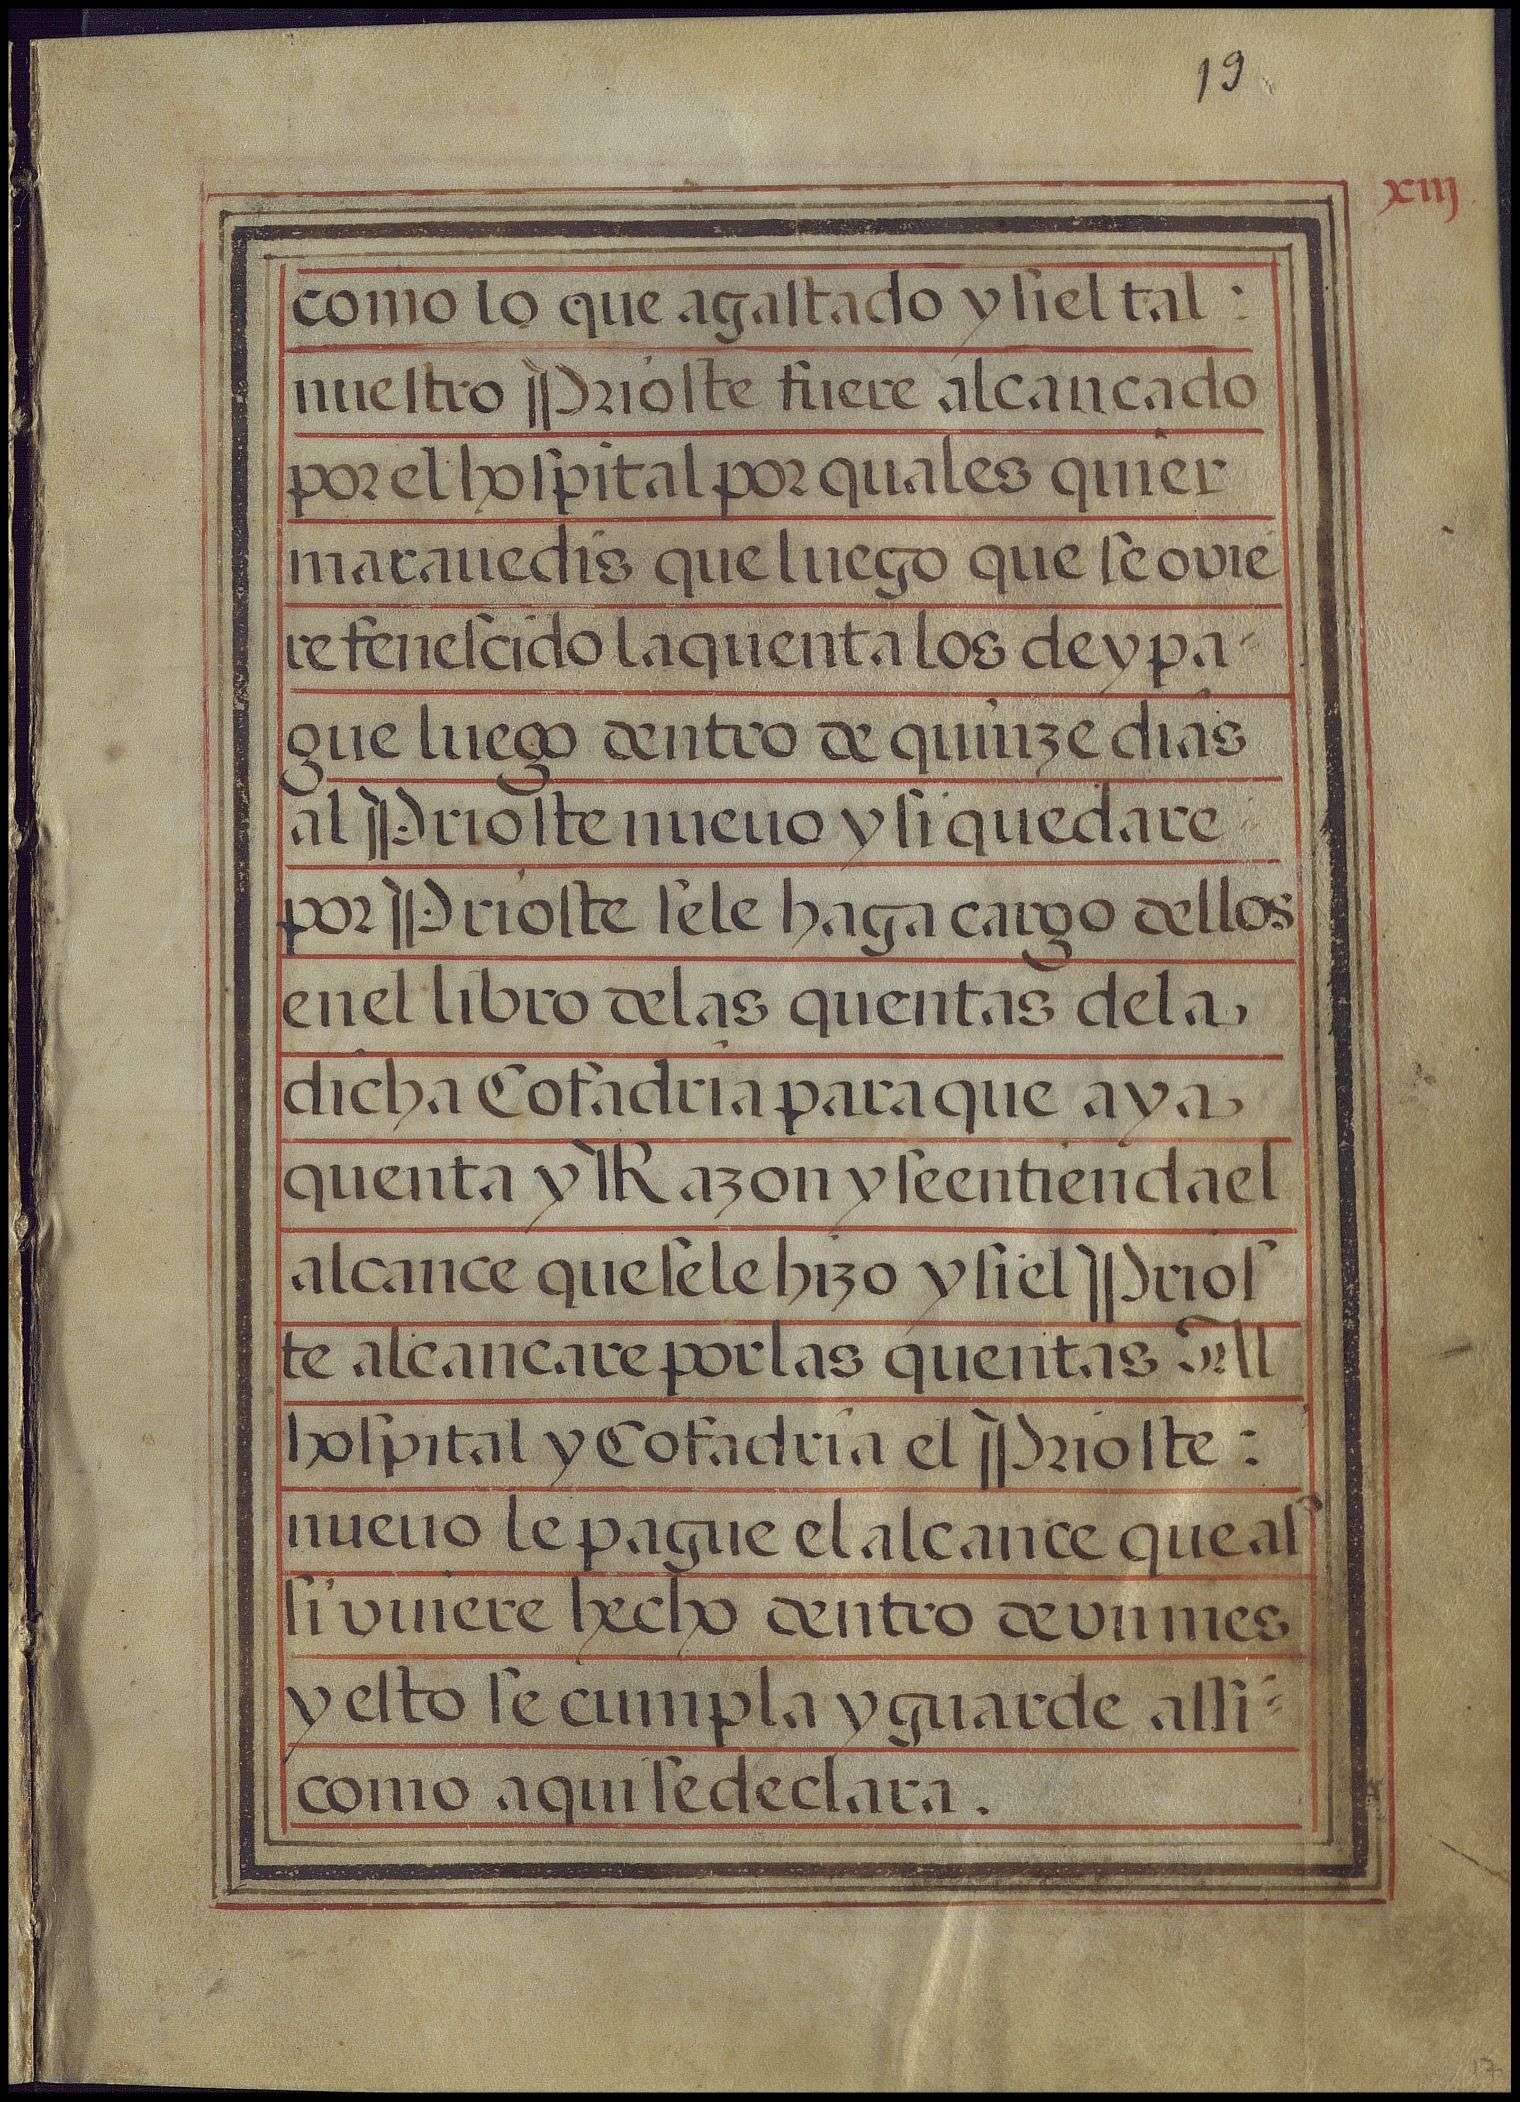 19
xiij
como lo que agastado y si el tal :
nuestro Prioste fuere alcancado
por el hospital por quales quier
marauedis que luego que se ovie
re fenescido la quenta los de y pa-
gue luego dentro de quinze dias
al Prioste nueuo y si quedare
por Prioste se le haga cargo dellos
en el libro de las quentas de la
dicha Cofadria para que aya
quenta y Razon y se entienda el
alcance que se le hizo y si el Prios
te alcancare por las quentas Al
hospital y Cofadria el Prioste :
nueuo le pague el alcance que as
si vuiere hecho dentro de vn mes
y esto se cumpla y guarde assi-
como aqui se declara.
17